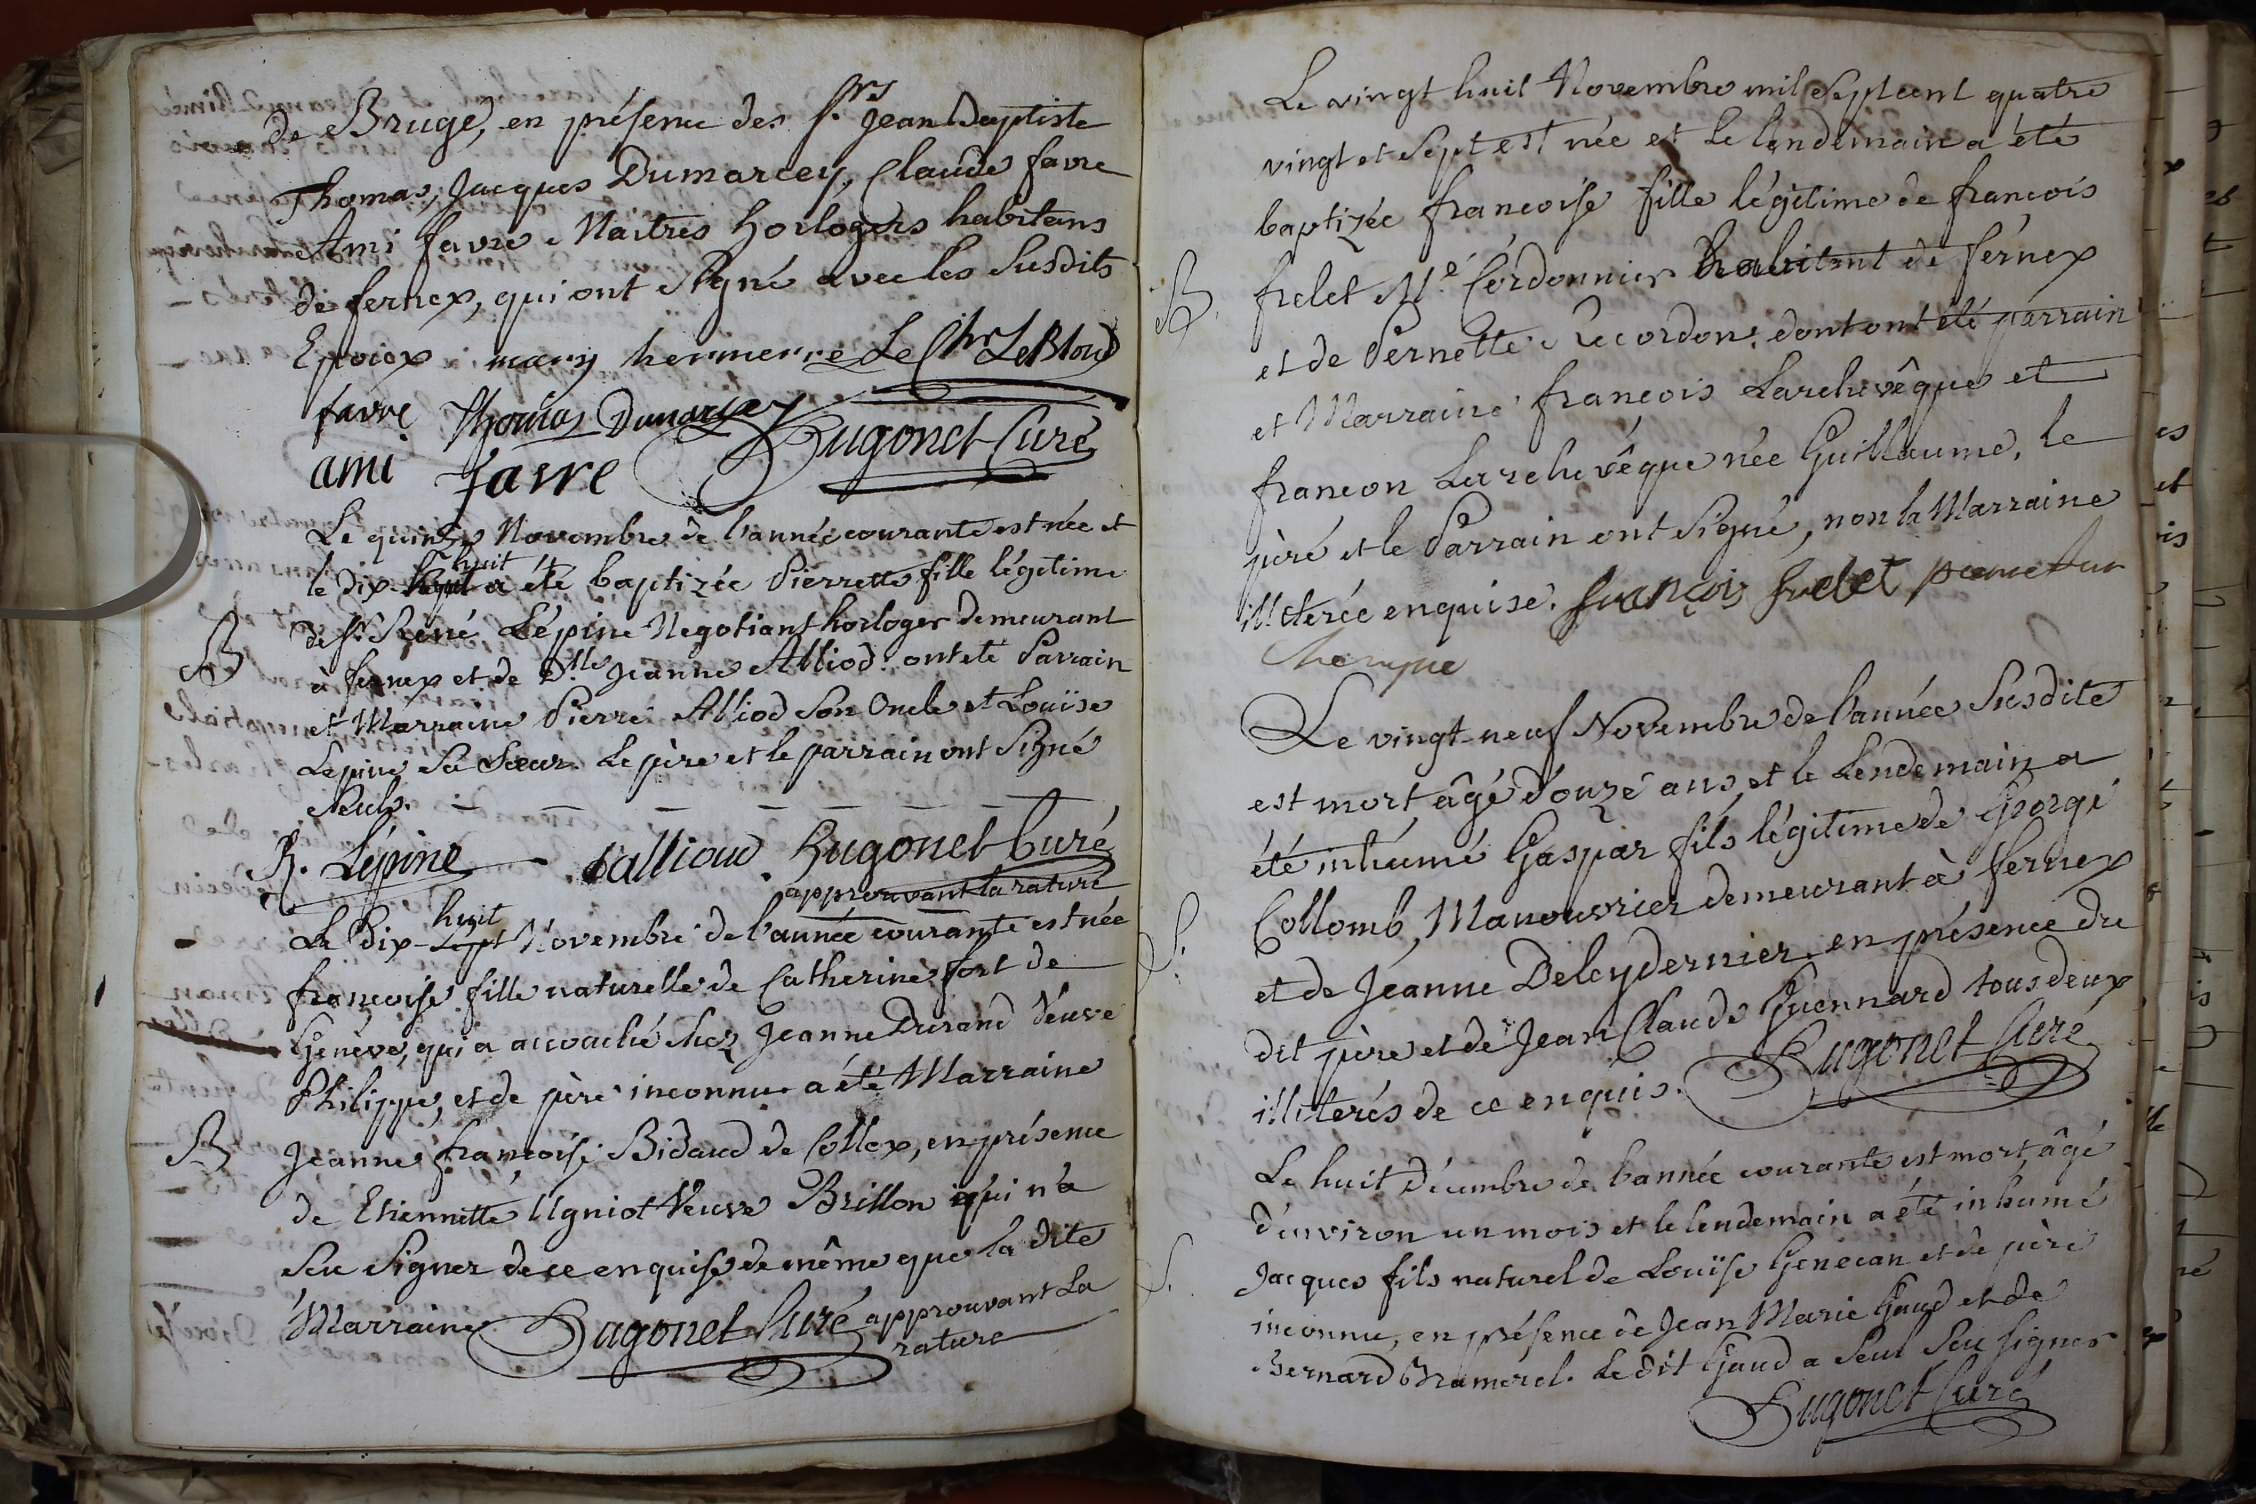 de Bruge, en présence des Srs. Jean Baptiste
Thomas, Jacques Dumarcey, Claude favre
Ami favre Maitres horlogers habitans
de fernex, qui ont Signé avec les Susdits
Epoiox mary hermenre Le Chr LeBlond
favre Thomas Dumarcey
ami favre Hugonet Curé
Le quinze Novembre de l'année courante est née et
le dix-huit a été baptizée Pierrette fille légitime
B de Sr. René Lépine Negotiant horloger demeurant
à fernex et de Dlle Jeanne Alliod: ont été Parrain
et Marraine Pierre Alliod Son Oncle et Louïse
Lepine Sa Sœur. Le père et le parrain ont Signé
Seuls.
R. Lépine P allioud Hugonet Curé
approuvant la rature
huit
Le Dix-sept Novembre de l'année courante est née
françoise fille naturelle de Catherine fort de
Genève, qui a accouché chez Jeanne Durand Veuve
Philippe, et de père inconnu a été Marraine
B Jeanne françoise Bidaud de Collex, en présence
de Etiennette Ugniot Veuve Brillon qui n'a
Seu Signer de ce enquise de même que la dite
Marraine Hugonet Curé approuvant La
rature
Le vingt huit Novembre mil Septcent quatre
vingt et Sept est née et Le Lendemain a été
baptizée françoise fille légitime de françois
B. frelet Me. Cordonnier habitant de férnex
et de Pernette Recordon, dont ont été parrain
et Marraine françois Larchevêque et
françon Larchevêque née Guillaume, le
père et le Parrain ont Signé, non la Marraine
illiterée enquise. françois frelet
Le vingt-neuf Novembre de l'année Susdite
est mort âgé d'onze ans, et le Lendemain a
été inhumé Gaspar fils légitime de George
S. Collomb, Manouvrier demeurant à fernex
et de Jeanne Deleydernier, en présence du
dit père et de Jean Claude Guennard tous deux
illiterés de ce enquis. Hugonet Curé
Le huit Décembre de l'année courante est mort, âgé
d'environ un mois et le lendemain a été inhumé
S. Jacques fils naturel de Louïse Genecan et de père
inconnu, en présence de Jean Marie Gaud et de
Bernard Bramerel. Le dit Gaud a Seul Seu signer
Hugonet Curé